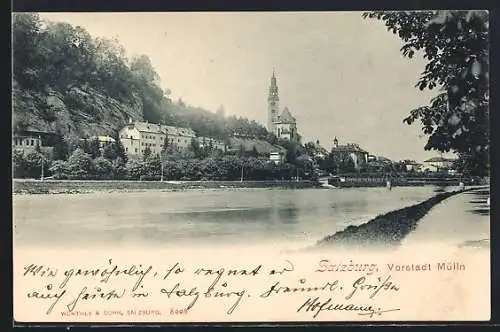 Salzburg, Vorstadt Mülln
Wie gewöhnlich, so regnet er
auch heute in Salzburg. Freundl. Grüße
Hofmann.
WÜRTHLE & SOHN, SALZBURG.